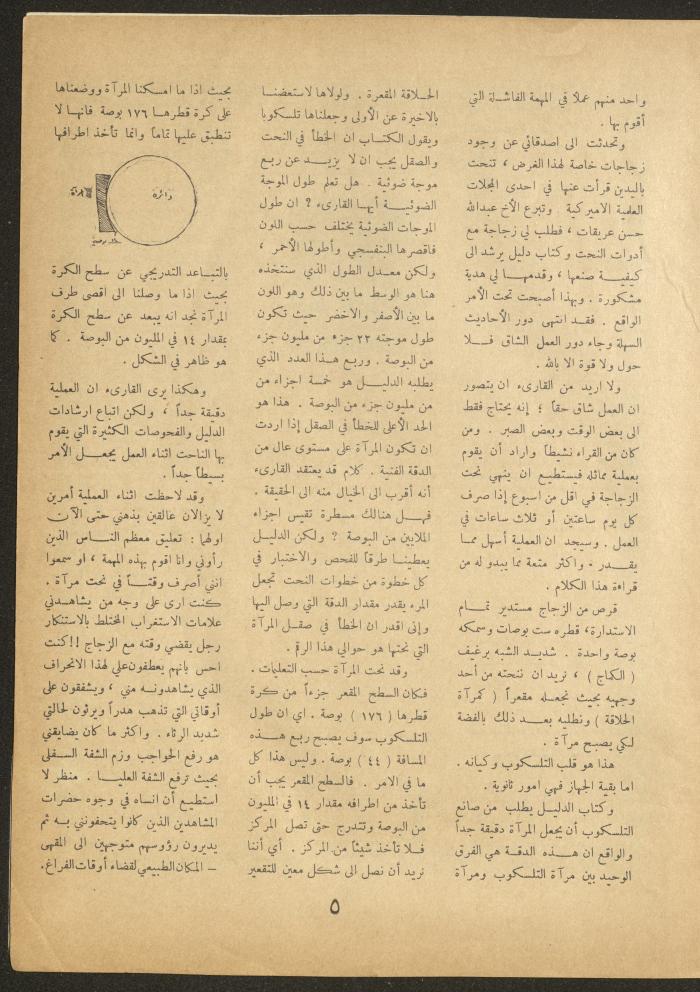 واحد منهم عملاً في المهمة الفاشلة التي
أقوم بها .
وتحدثت الى اصدقائي عن وجود
زجاجات خاصة لهذا الغرض ، تنحت
باليدين قرأت عنها في احدى المجلات
العلمية الاميركية . وتبرع الأخ عبدالله
حسن عريقات ، فطلب لي زجاجة مع
أدوات النحت وكتاب دليل يرشد الى
كيفية صنعها ، وقدمها لي هدية
مشكورة . وبهذا أصبحت تحت الأمر
الواقع . فقد انتهى دور الأحاديث
السهلة وجاء دور العمل الشاق فلا
حول ولا قوة الا بالله .
ولا اريد من القارىء ان يتصور
ان العمل شاق حقاً ؛ إنه يحتاج فقط
الى بعض الوقت وبعض الصبر . ومن
كان من القراء نشيطاً واراد أن يقوم
بعملية مماثله فيستطيع ان ينهي نحت
الزجاجة في اقل من اسبوع إذا صرف
كل يوم ساعتين أو ثلاث ساعات في
العمل . وسيجد ان العملية أسهل مما
يقدر . واكثر متعة مما يبدو له من
قراءة هذا الكلام .
قرص من الزجاج مستدير تمام
الاستدارة، قطره ست بوصات وسمكه
بوصة واحدة . شديد الشبه برغيف
( الكماج ) ، نريد ان ننحته من أحد
وجهيه بحيث نجعله مقعراً ( كمرآة
الحلاقة ) ونطليه بعد ذلك بالفضة
لكي يصبح مرآة .
هذا هو قلب التلسكوب وكيانه .
اما بقية الجهاز فهي امور ثانوية .
وكتاب الدليل يطلب من صانع
التلسكوب أن يجعل المرآة دقيقة جداً
والواقع ان هذه الدقة هي الفرق
الوحيد بين مرآة التلسكوب ومرآة
الحلاقة المقعرة . ولولاها لاستعضنا
بالاخيرة عن الأولى وجعلناها تلسكوبا
ويقول الكتاب ان الخطأ في النحت
والصقل يجب ان لا يزيد عن ربع
موجة ضوئية . هل تعلم طول الموجة
الضوئية أيها القارىء ؟ ان طول
الموجات الضوئية يختلف حسب اللون
فاقصرها البنفسجي وأطولها الأحمر ،
ولكن معدل الطول الذي سنتخذه
هنا هو الوسط ما بين ذلك وهو اللون
ما بين الأصفر والاخضر حيث تكون
طول موجته ٢٢ جزء من مليون جزء
من البوصة . وربع هذا العدد الذي
يطلبه الدليل هو خمسة اجزاء من
من مليون جزء من البوصة . هذا هو
الحد الأعلى للخطأ في الصقل إذا اردت
ان تكون المرآة على مستوى عال من
الدقة الفنية . كلام قد يعتقد القارىء
أنه أقرب الى الخيال منه الى الحقيقة .
فهل هنالك مسطرة تقيس اجزاء
الملايين من البوصة ؟ ولكن الدليل
يعطينا طرقاً للفحص والاختبار في
كل خطوة من خطوات النحت تجعل
المرء يقدر مقدار الدقة التي وصل اليها
وإنى اقدر ان الخطأ في صقل المرآة
التي نحتها هو حوالي هذا الرقم .
وقد نحت المرآة حسب التعليمات .
فكان السطح المقعر جزءاً من كرة
قطرها ( ١٧٦ ) بوصة . اي ان طول
التلسكوب سوف يصبح ربع هذه
المسافة ( ٤٤ ) بوصة . وليس هذا كل
ما في الامر . فالسطح المقعر يجب أن
تأخذ من اطرافه مقدار ١٤ في المليون
من البوصة وتتدرج حتى تصل المركز
فلا تأخذ شيئاً من المركز . أي أننا
نريد أن نصل الى شكل معين للتقعير
بحيث اذا ما امكننا المرآة ووضعناها
على كرة قطرها ١٧٦ بوصة فانها لا
تنطبق عليها تماماً وانما تأخذ اطرافها
دائرة
بالتباعد التدريجي عن سطح الكرة
بحيث اذا ما وصلنا الى اقصى طرف
المرآة نجد انه يبعد عن سطح الكرة
بمقدار ١٤ في المليون من البوصة . كما
هو ظاهر في الشكل .
وهكذا يرى القارىء ان العملية
دقيقة جداً ، ولكن اتباع ارشادات
الدليل والفحوصات الكثيرة التي يقوم
بها الناحت اثناء العمل يجعل الأمر
بسيطاً جداً .
وقد لاحظت اثناء العملية أمرين
لا يزالان عالقين بذهني حتى الآن
اولها : تعليق معظم الناس الذين
رأوني وانا اقوم بهذه المهمة ، او سمعوا
انني أصرف وقتاً في نحت مرآة .
كنت ارى على وجه من يشاهدني
علامات الاستغراب المختلط بالاستنكار
رجل يقضي وقته مع الزجاج !! كنت
احس بانهم يعطفون على لهذا الانحراف
الذي يشاهدونه مني ، ويشفقون على
أوقاتي التي تذهب هدراً ويرثون لحالتي
شديد الرثاء . واكثر ما كان يضايقني
هو رفع الحواجب وزم الشفة السفلى
بحيث ترفع الشفة العليا . منظر لا
استطيع أن انساه في وجوه حضرات
المشاهدين الذين كانوا يتحفونني به ثم
يديرون رؤوسهم متوجهين الى المقهى
– المكان الطبيعي لقضاء أوقات الفراغ.
٥